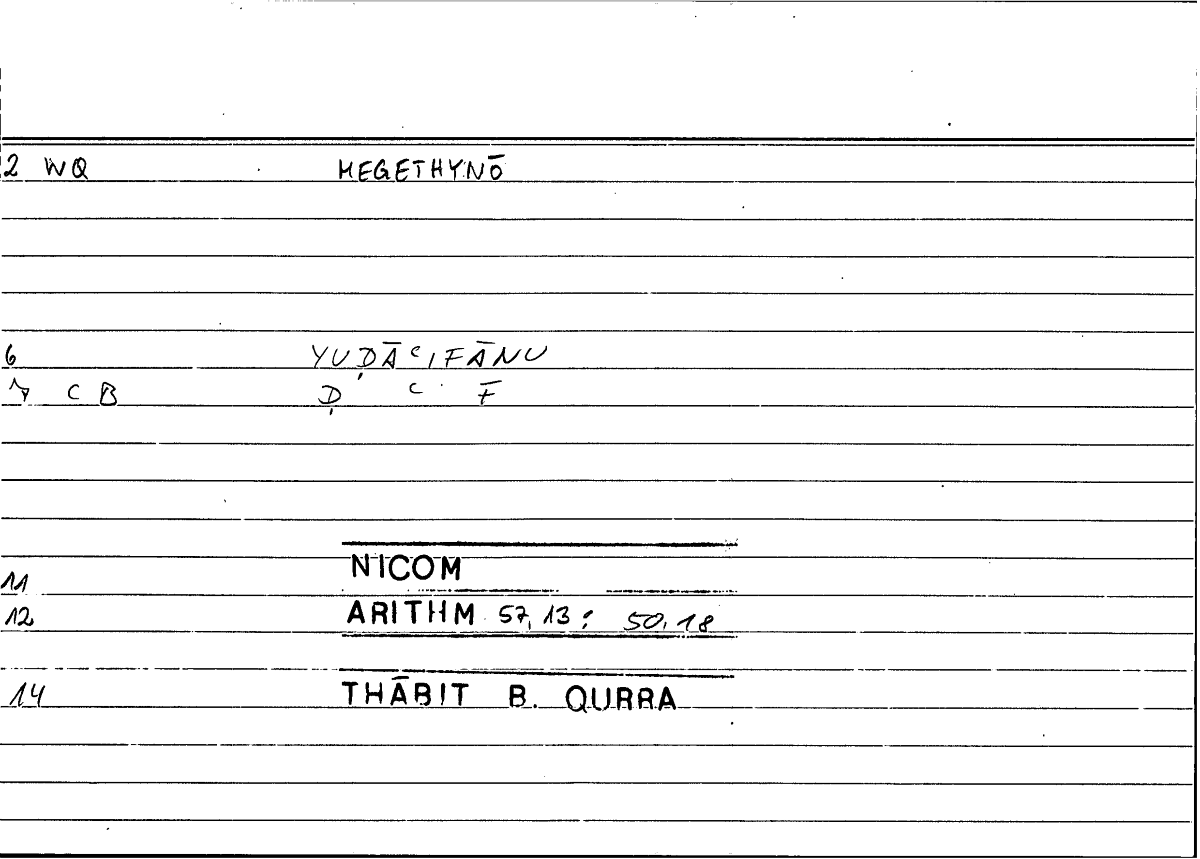 2 WQ MEGETHYNŌ
6 YUḌĀʿIFĀNU
7 CB Ḍ ʿ F̄
11 NICOM
12 ARITHM 57,13 : 50,18
14 THĀBIT B. QURRA